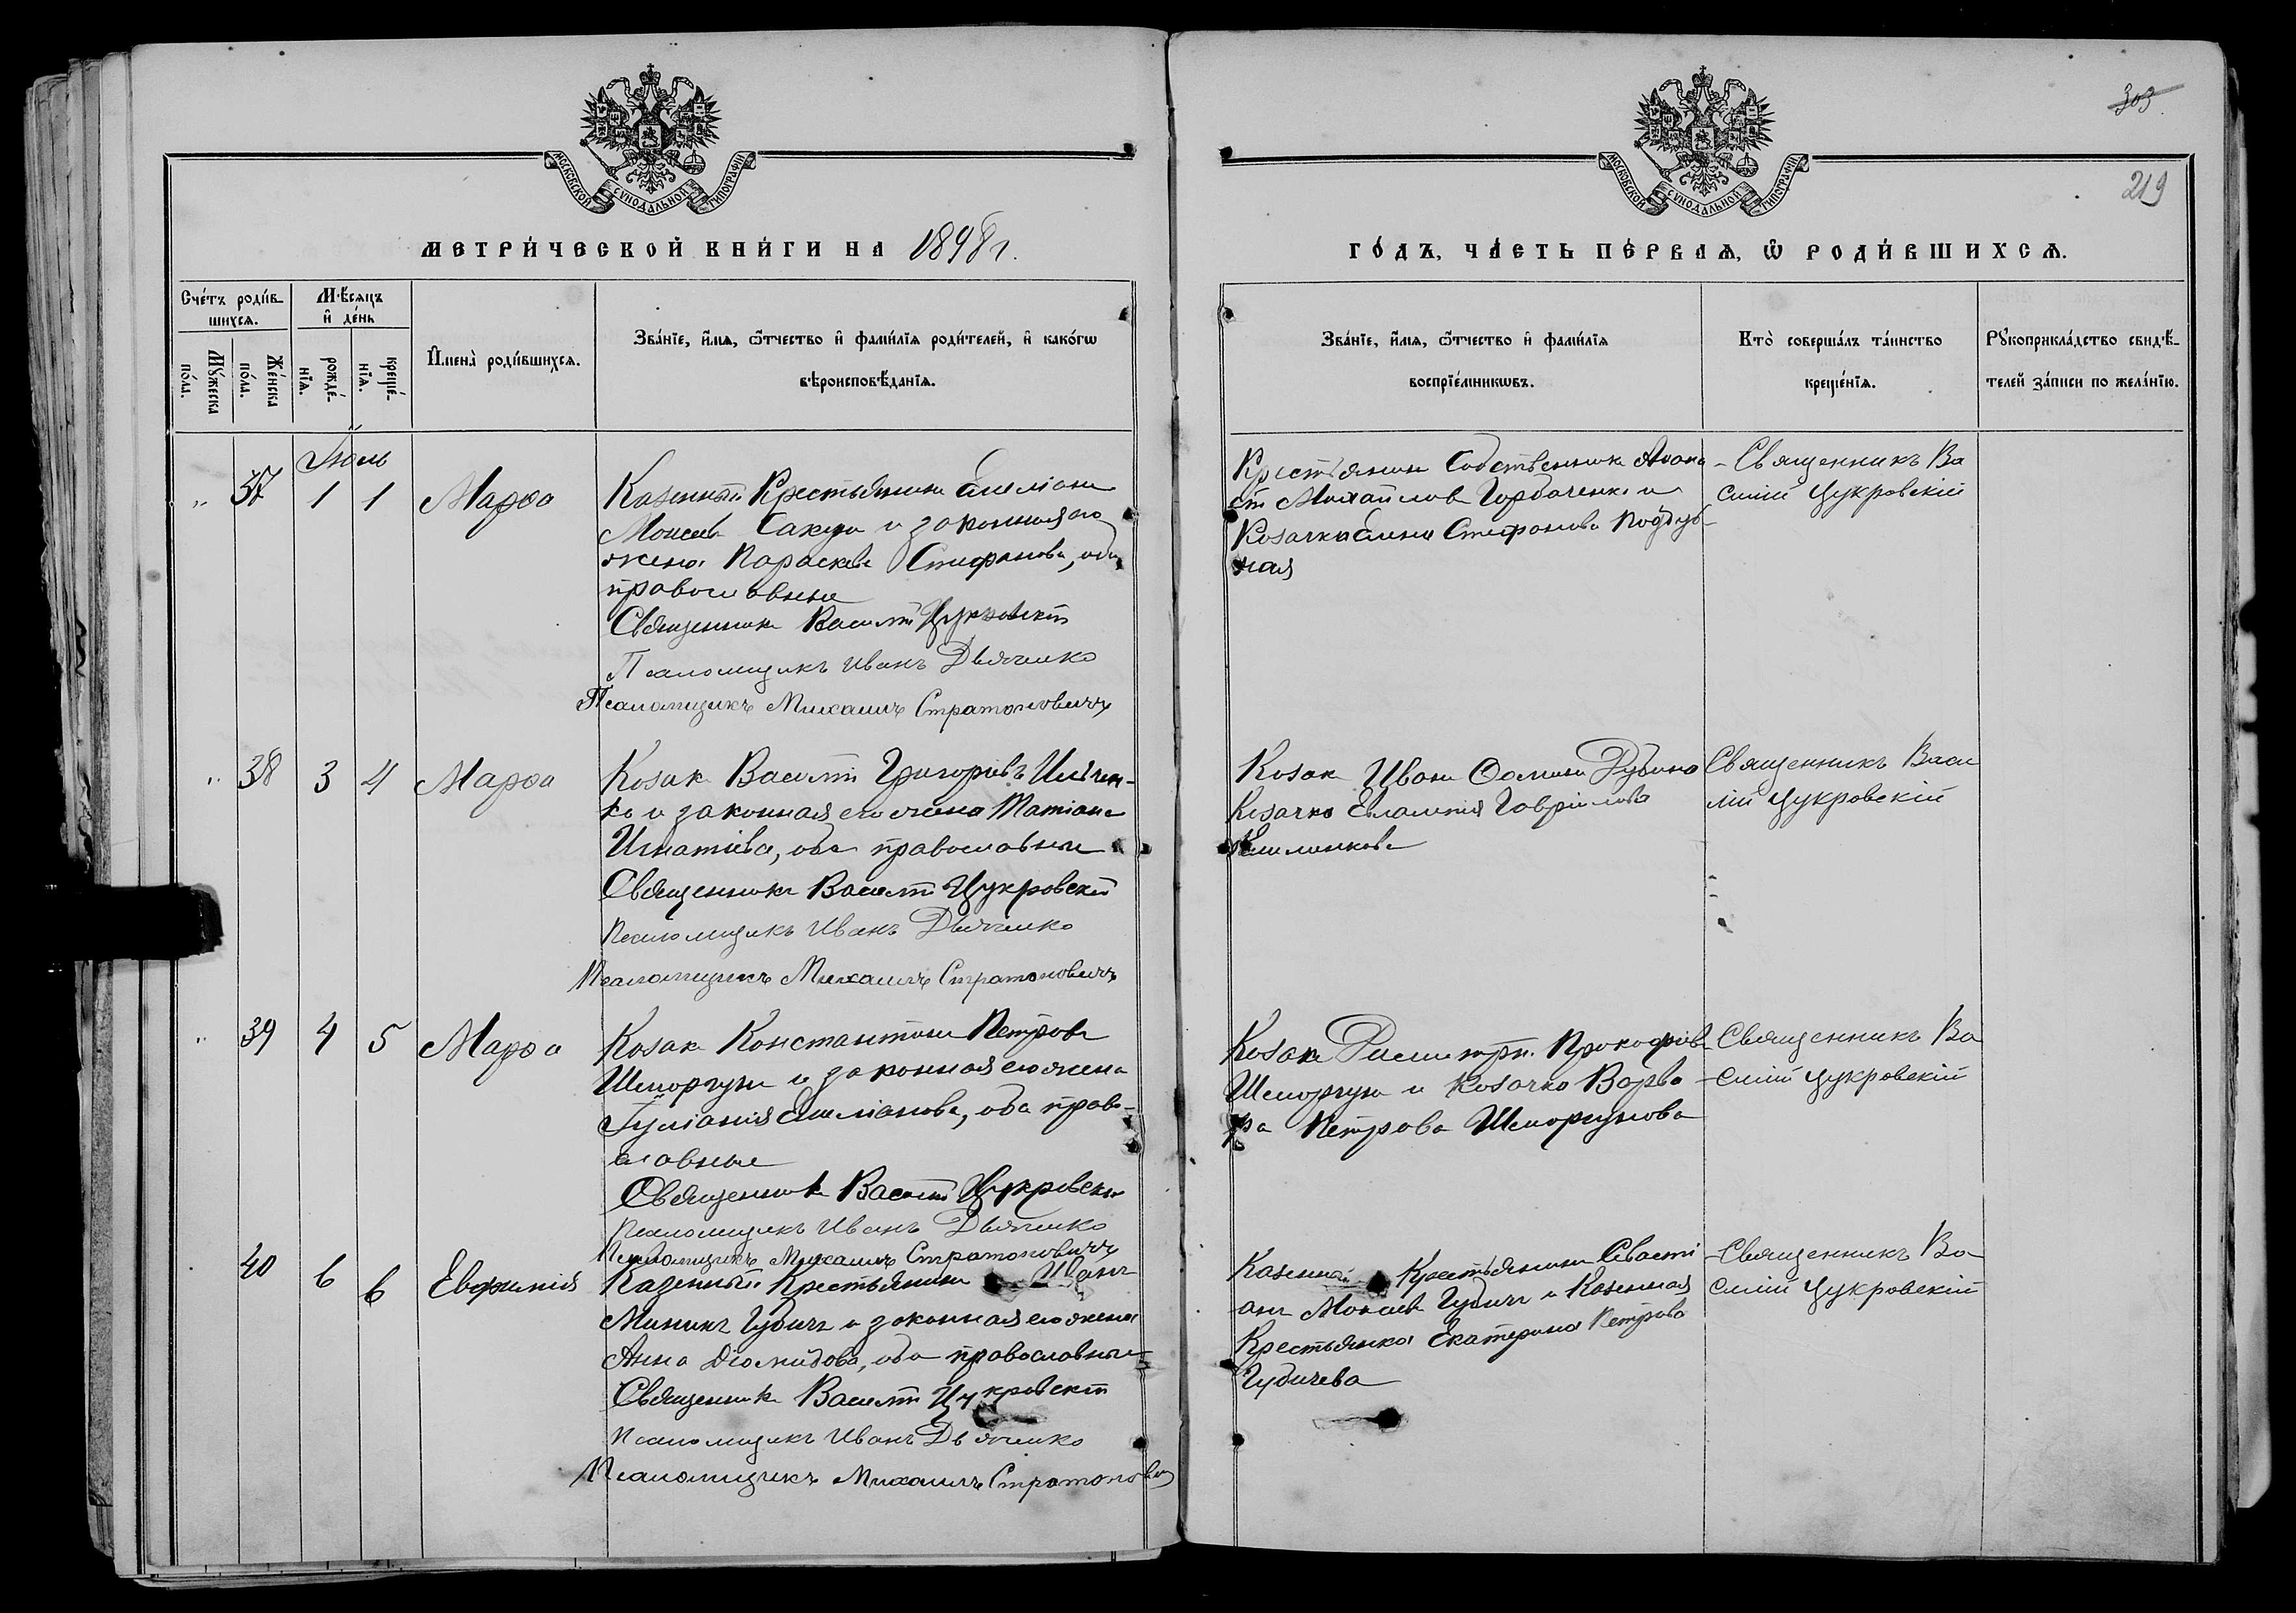 303
219
МОСКОВСКОЙ СѴНОДАЛЬНОЙ ТИПОГРАФІИ
МОСКОВСКОЙ СѴНОДАЛЬНОЙ ТИПОГРАФІИ
МЕТРИ́ЧЕСКОЙ КНИ́ГИ НА 1898 г.
ГО́ДЪ, ЧА́СТЬ ПЕ́РВАѦ, Ѽ РОДИ́ВШИХСѦ.
Сче́тъ роди́в-
шихсѧ.
Мꙋ́жеска по́ла.
Же́нска по́ла.
Мѣ́сѧцъ
и҆ де́нь
рожде́-
нїѧ.
креще́-
нїѧ.
И҆мена̀ роди́вшихсѧ.
Зва́нїе, и҆́мѧ, ѻ҆́тчество и҆ фами́лїѧ роди́телей, и҆ како́гѡ
вѣроисповѣ́данїѧ.
Зва́нїе, и҆́мѧ, ѻ҆́тчество и҆ фами́лїѧ
воспрїе́мникѡвъ.
Кто̀ соверша́лъ та́инство
креще́нїѧ.
Рꙋкоприкла́дство свидѣ́-
телей за́писи по жела́нїю.
Іюль
37 1 1 Марѳа
Казенный Крестьянинъ Емеліанъ
Моисеевъ Сакунъ и законная его
жена Параскева Стефанова, оба
православные
Священникъ Василій Цукровскій
Псаломщикъ Иванъ Дьяченко
Псаломщикъ Михаилъ Стратоновичъ
Крестьянинъ Собственникъ
Михайловъ Горбаченко и
Козачка Елена Стефанова Поддуб-
ная
Священникъ Ва
силій Цукровскій
38 3 4 Марѳа
Козакъ Василій Григоріевъ Ильчен-
ко и законная его жена Татіана
Игнатіева, оба православные
Священникъ Василій Цукровскій
Псаломщикъ Иванъ Дьяченко
Псаломщикъ Михаилъ Стратоновичъ
Козакъ Иванъ Ѳоминъ
Козачка Евлампія Гавріилова
Священникъ Васи
лій Цукровскій
39 4 5 Марѳа
Козакъ Константинъ Петровъ
Шморгунъ и законная его жена
Іуліанія Емеліанова, оба право-
славные
Священникъ Василій Цукровскій
Псаломщикъ Иванъ Дьяченко
Псаломщикъ Михаилъ Стратоновичъ
Козакъ Димитрій Прокофіевъ
Шморгунъ и Козачка Варва
ра Петрова Шморгунова
Священникъ Ва
силій Цукровскій
40 6 6 Евфимія
Казенный Крестьянинъ Иванъ
Мининъ Губичъ и законная его жена
Анна Діомидова, оба православные
Священникъ Василій Цукровскій
Псаломщикъ Иванъ Дьяченко
Псаломщикъ Михаилъ Стратонович
Казенный Крестьянинъ Севасті
анъ Моисеевъ Губичъ и Казенная
Крестьянка Екатерина Петрова
Губичева
Священникъ Ва
силій Цукровскій